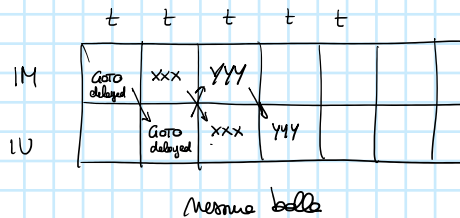 t t t t t
IM GOTO delayed XXX YYY
IU GOTO delayed XXX YYY
Nessuna bolla